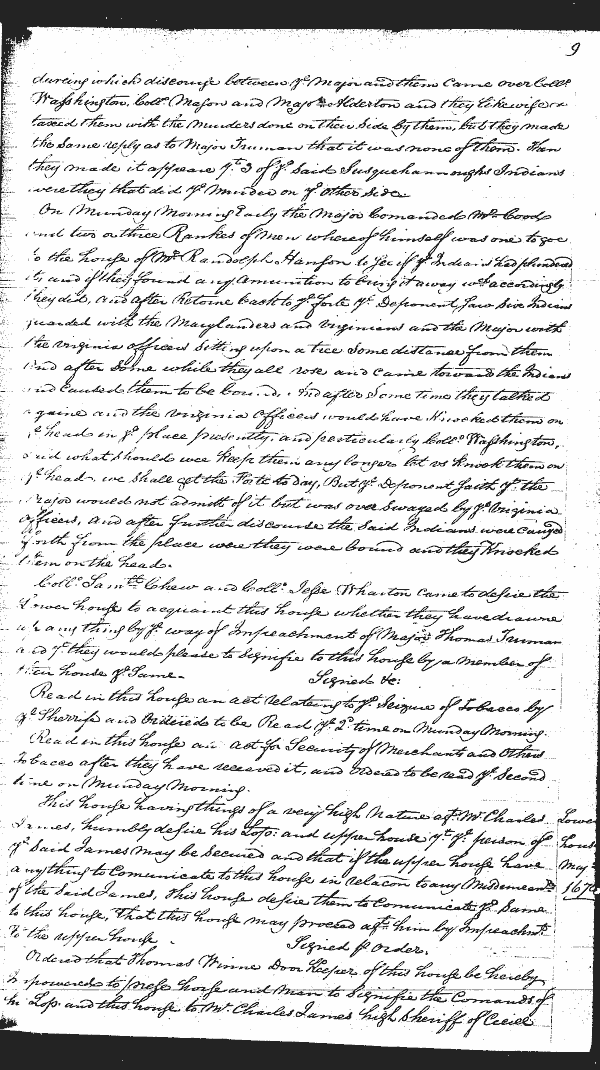 9
dureing which discourse between ye Major and them Came over Collo
Washington, Collo Mason and Majr Alderton and they likewise
taxed them with the Murders done on their Side by them, but they made
the Same reply as to Major Truman that it was none of them. Then
they made it appeare yt 3 of ye Said Susquehannoughs Indians
were they that did ye Murder on ye other Side
On Munday Morning Early the Major Comanded Mr Goods
and two or three Rankes of Men whereof himself was one to goe
to the house of Mr Randolph Hanson to See if ye Indians had plundered
it, and if they found any Amunition to bring it away wch accordingly
they did, and after Retorne back to ye forte ye Deponent Saw Six Indians
guarded with the Marylanders and virginians and the Major with
the virginia officers Sitting upon a tree Some distance from them
and after Some while they all rose and came toward the Indians
and caused them to be bound. And after Some time they talked
againe and the virginia Officers would have Knocked them on
ye head in ye place presently, and particularly Collo Washington,
Said what should wee keep them any longer let us Knock them on
ye head we Shall get the Forte to day, But ye Deponent Saith yt the
Major would not admitt of it but was over Swayed by ye Virginia
officers, and after further discourse the Said Indians were carryed
forth from the place were they were bound and they Knocked
them on the head.
Collo Samll Chew and Collo Jesse Wharton came to desire the
Lower house to acquaint this house whether they have drawne
up any thing by ye way of Impeachment of Major Thomas Truman
and yt they would please to Signifie to this house by a Member of
their house ye Same. Signed &c:
Read in this house an act relateing to ye Seizure of Tobacco by
ye Sherriffe and Ordered to be Read ye 2d time on Munday Morning.
Read in this house an act for Security of Merchants and Others
Tobacco after they have received it, and Ordered to be read ye Second
time on Munday Morning.
This house having things of a very high Nature agt Mr Charles
James, humbly desire his Lopp: and upper house yt ye person of
ye Said James May be Secured and that if the upper house have
any thing to Comunicate to this house in relacon to any Misdemeanrs
of the Said James, this house desire them to Comunicate ye Same
to this house, That this house may proceed agt him by Impeachmt
To the upper house. Signed p Order.
Lower
house
May
1676
Ordered that Thomas Winne Door Keeper of this house be hereby
Impowered to press horse and Man to Signifie the Comands of
his Lopp and this house to Mr Charles James high Sheriff of Cecill